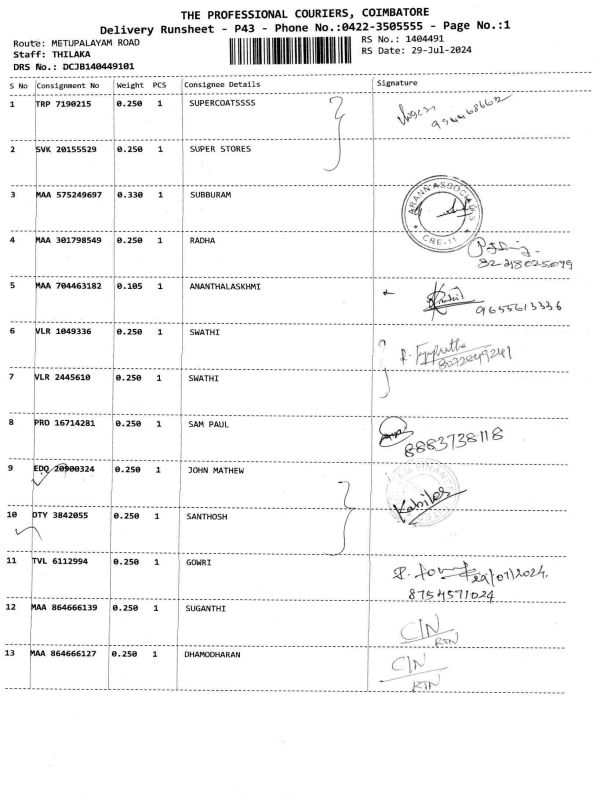 THE PROFESSIONAL COURIERS, COIMBATORE
Delivery Runsheet - P43 - Phone No.:0422-3505555 - Page No.:1
Route: METUPALAYAM ROAD
Staff: THILAKA
DRS No.: DCJB140449101
RS No.: 1404491
RS Date: 29-Jul-2024
S No Consignment No Weight PCS Consignee Details Signature
1 TRP 7190215 0.250 1 SUPERCOATSSSS
2 SVK 20155529 0.250 1 SUPER STORES
3 MAA 575249697 0.330 1 SUBBURAM
ARANN ASSOCIATES
CRE-11
4 MAA 301798549 0.250 1 RADHA
5 MAA 704463182 0.105 1 ANANTHALASKHMI
9655613336
6 VLR 1049336 0.250 1 SWATHI
7 VLR 2445610 0.250 1 SWATHI
8 PRO 16714281 0.250 1 SAM PAUL
8883738118
9 EDQ 20900324 0.250 1 JOHN MATHEW
Kabiles
10 OTY 3842055 0.250 1 SANTHOSH
11 TVL 6112994 0.250 1 GOWRI
29/07/2024.
8754571024
12 MAA 864666139 0.250 1 SUGANTHI
C/N
RTN
13 MAA 864666127 0.250 1 DHAMODHARAN
C/N
RTN